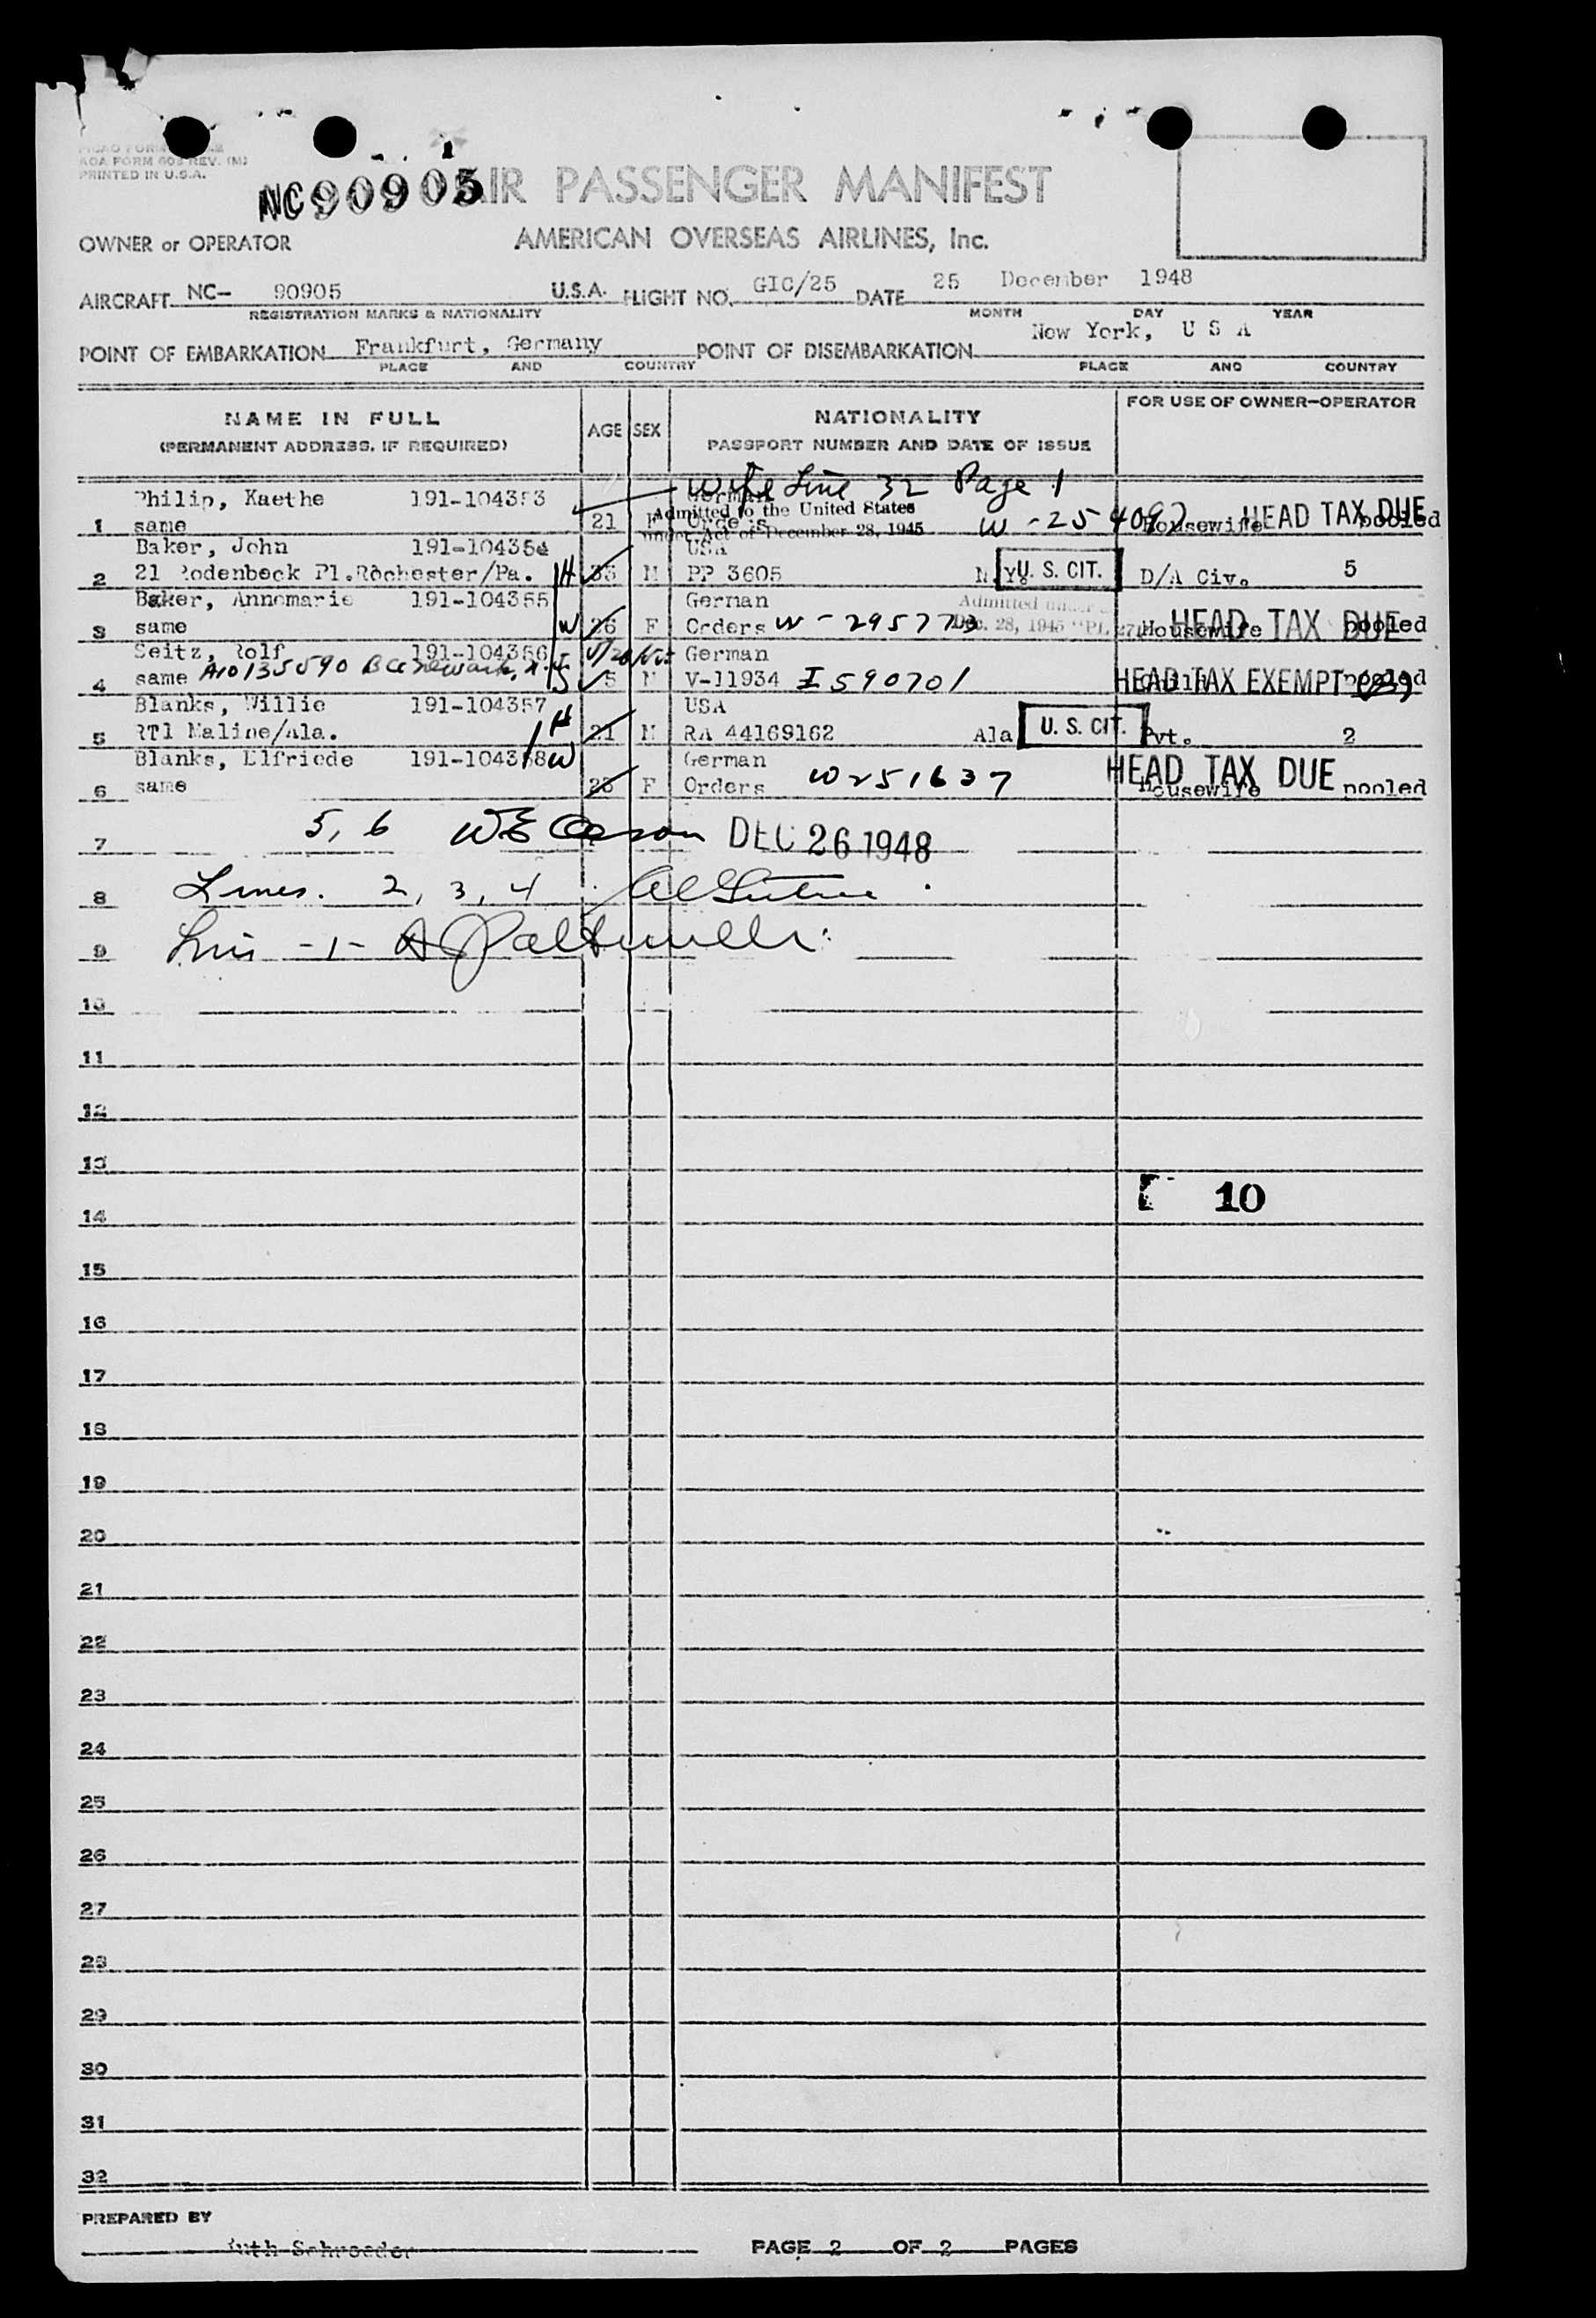 AOA FORM 603 REV. (M)
PRINTED IN U.S.A.
NC90905
AIR PASSENGER MANIFEST
OWNER or OPERATOR
AMERICAN OVERSEAS AIRLINES, Inc.
AIRCRAFT NC- 90905 U.S.A. FLIGHT NO. GIC/25 DATE 25 December 1948
REGISTRATION MARKS & NATIONALITY MONTH DAY YEAR
POINT OF EMBARKATION Frankfurt, Germany POINT OF DISEMBARKATION New York, U S A
PLACE AND COUNTRY PLACE AND COUNTRY
NAME IN FULL
(PERMANENT ADDRESS, IF REQUIRED)
AGE SEX
NATIONALITY
PASSPORT NUMBER AND DATE OF ISSUE
FOR USE OF OWNER-OPERATOR
Wife Line 32 Page 1
Philip, Kaethe 191-104353 German
Admitted to the United States
under Act of December 28, 1945
1 same 21 F Orders W-254092 Housewife HEAD TAX DUE pooled
Baker, John 191-104354 USA
2 21 Rodenbeck Pl.Rochester/Pa. H 33 M PP 3605 N.Y. U. S. CIT. D/A Civ. 5
Baker, Annemarie 191-104355 German Admitted under
3 same W 26 F Orders W-295773 Dec. 28, 1945 "PL 271 Housewife HEAD TAX DUE pooled
Seitz, Rolf 191-104356 German
4 same A10135590 5 M V-11934 I590701 Child HEAD TAX EXEMPT pooled
Blanks, Willie 191-104357 H USA
5 RT1 Maline/Ala. 21 M RA 44169162 Ala U. S. CIT. Pvt. 2
Blanks, Elfriede 191-104358 W German
6 same F Orders W251637 Housewife HEAD TAX DUE pooled
7 5, 6 DEC 26 1948
8 Lines. 2, 3, 4
9 Line -1-
10
11
12
13
10
14
15
16
17
18
19
20
21
22
23
24
25
26
27
28
29
30
31
32
PREPARED BY
Ruth Schroeder PAGE 2 OF 2 PAGES